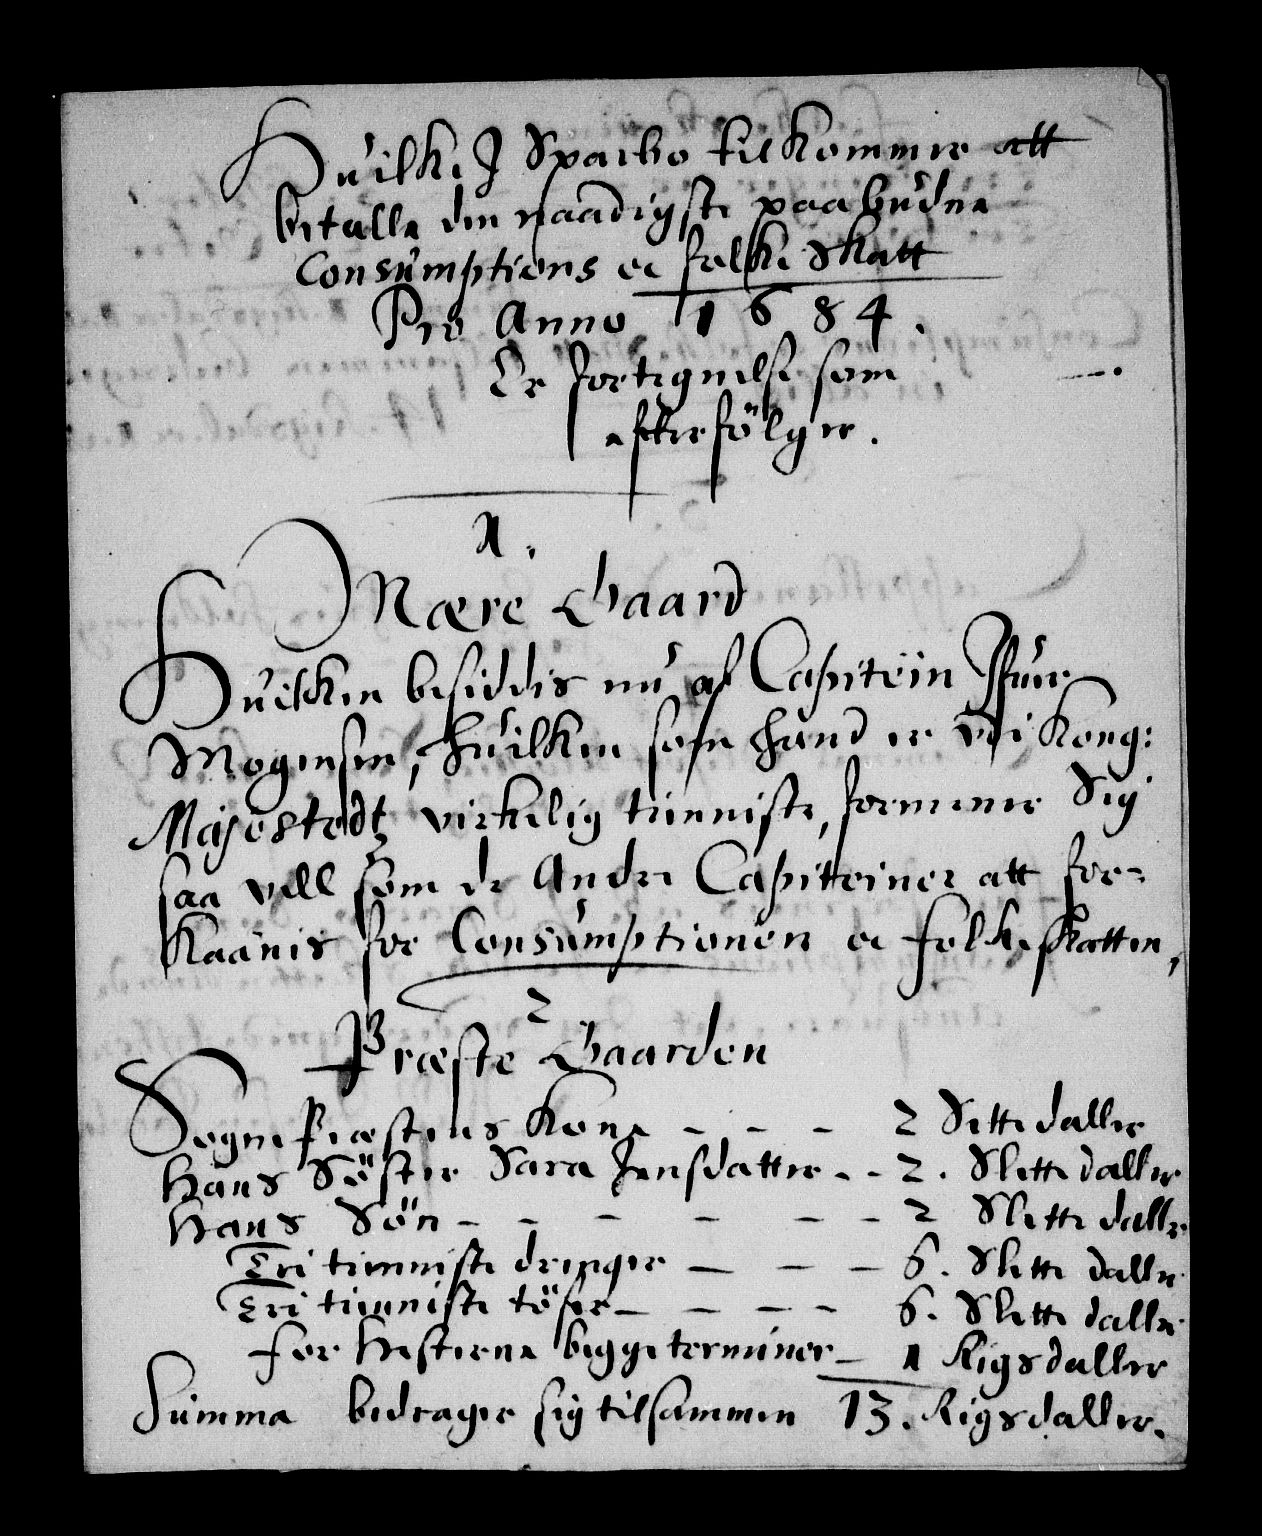 Huilke J Sparbo tilkommer att
betalle den naadigste paabudne
Consumptions oc folke Skatt
Pro Anno 1684.
Er fortegnelse som
efterfölger.
1.
Mære Gaard
Huilken besiddis nu af Capitein
Mogensen, huilken som hand er udi Kong:
Majestedtz virkelig tienniste, formener Sig
saa vell som de Andre Capiteiner att for-
skaanis for Consumptionen oc folke skatten,
2
Præste Gaarden
Sogne Præstens Kone - - - 2 Slitte daller
Hans Söster Sara Jensdatter - - 2. Slette daller
Hans Sön - - - - - - 2 Slette daller
Tri tienniste drenger - - - 6. Slette daller
Tri tienniste töser - - - - 6. Slette daller
for Hesterne begge terminer - 1 Rigsdaller
Summa bedrager sig tilsammen 13. Rigsdaller.